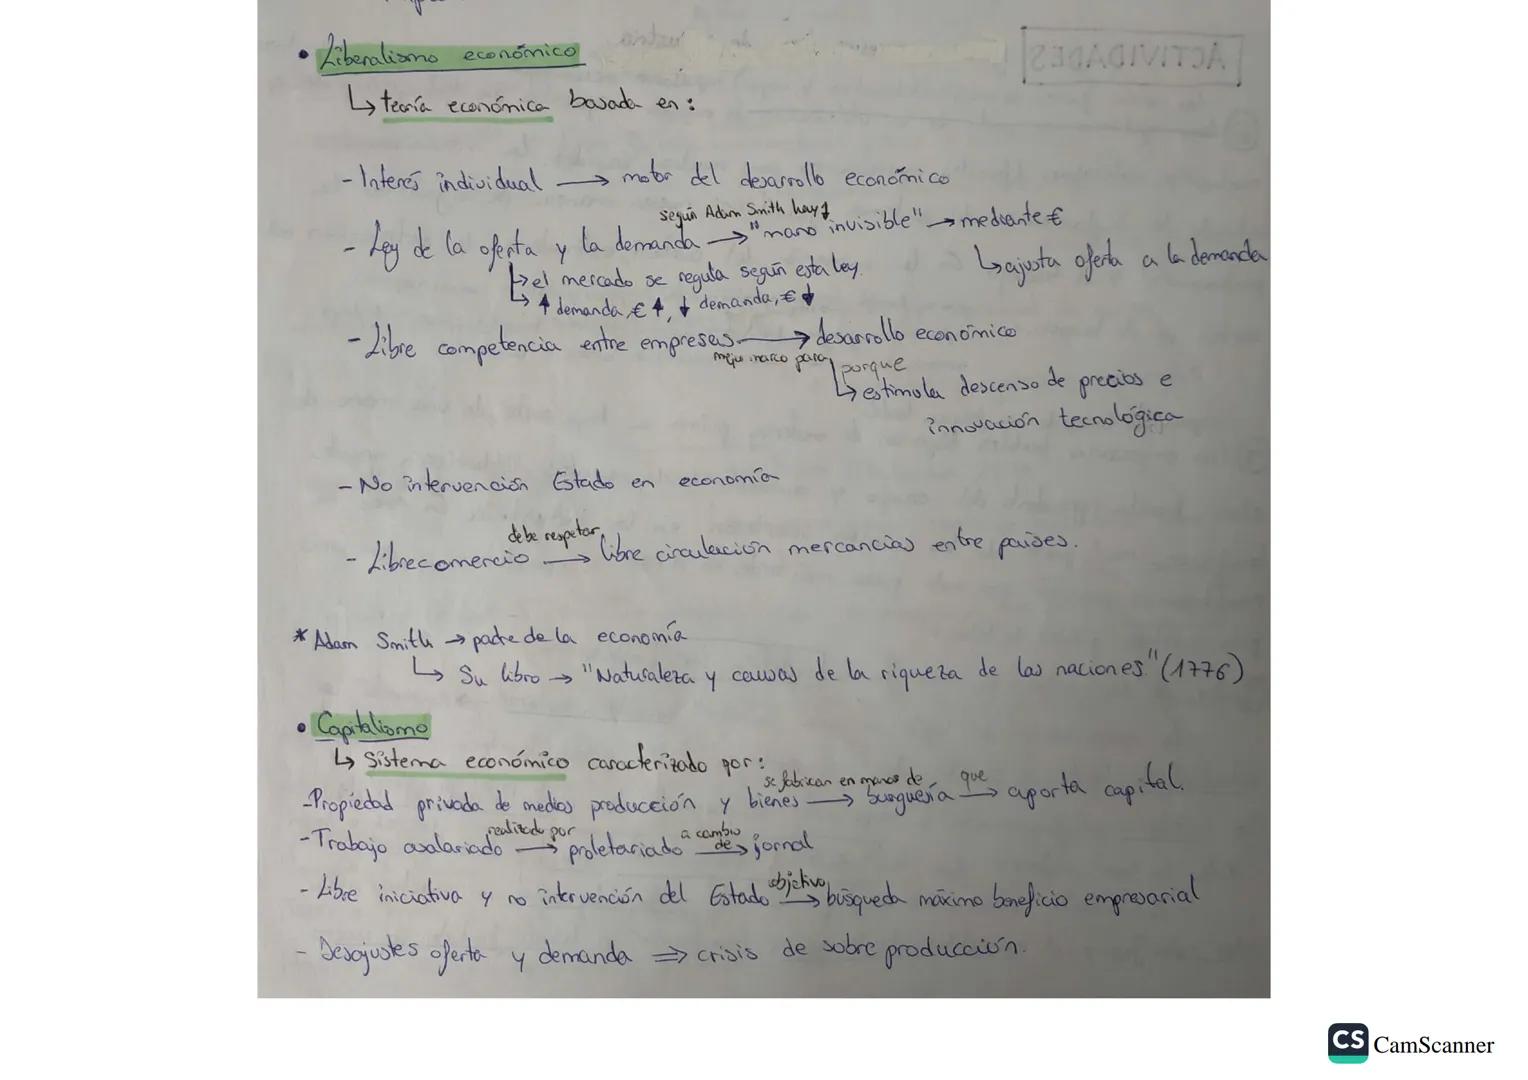 • Liberalismo económico
↳ teoría económica basada en:
- Interés individual → motor del desarrollo económico
según Adam Smith hay 1
- Ley de la oferta y la demanda → "mano invisible" → mediante €
↳ ajusta oferta a la demanda
↳ el mercado se regula según esta ley.
↳ ↑ demanda, € ↑, ↓ demanda, € ↓
- Libre competencia entre empresas → desarrollo económico
mejor marco para
porque
↳ estimula descenso de precios e
innovación tecnológica
- No intervención Estado en economía
debe respetar
- Librecomercio → libre circulación mercancías entre países.
* Adam Smith → padre de la economía
↳ Su libro → "Naturaleza y causas de la riqueza de las naciones" (1776)
• Capitalismo
↳ Sistema económico caracterizado por:
se fabrican en manos de que
- Propiedad privada de medios producción y bienes → burguesía → aporta capital.
realizado por a cambio de
- Trabajo asalariado → proletariado → jornal
objetivo
- Libre iniciativa y no intervención del Estado → búsqueda máximo beneficio empresarial
- Desajustes oferta y demanda ⇒ crisis de sobreproducción.
ACTIVIDADES
CS CamScanner